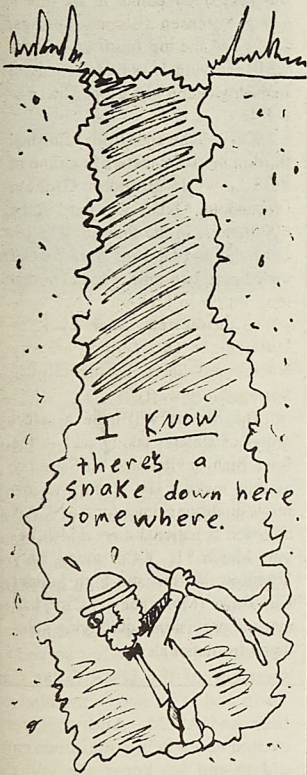 I KNOW
there's a
snake down here
somewhere.